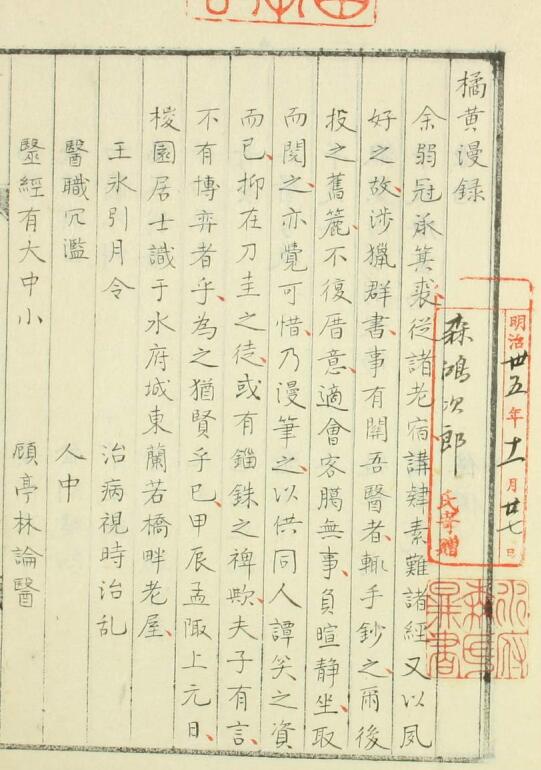 橘黄漫録
余弱冠承箕裘從諸老宿講肄素難諸經又以夙
好之故涉獵群書事有關吾醫者輒手鈔之爾後
投之舊簏不復厝意適會客臈無事負暄静坐取
而閱之亦覺可惜乃漫筆之以供同人譚笑之資
而已抑在刀圭之徒或有錙銖之裨歟夫子有言
不有博弈者乎為之猶賢乎已甲辰孟陬上元日
椶園居士識于水府城東蘭若橋畔老屋
王氷引月令 治病視時治乱
醫職冗濫 人中
毉經有大中小 顧亭林論醫
明治卅五年十一月廿七日
森鴻次郎
氏寄贈